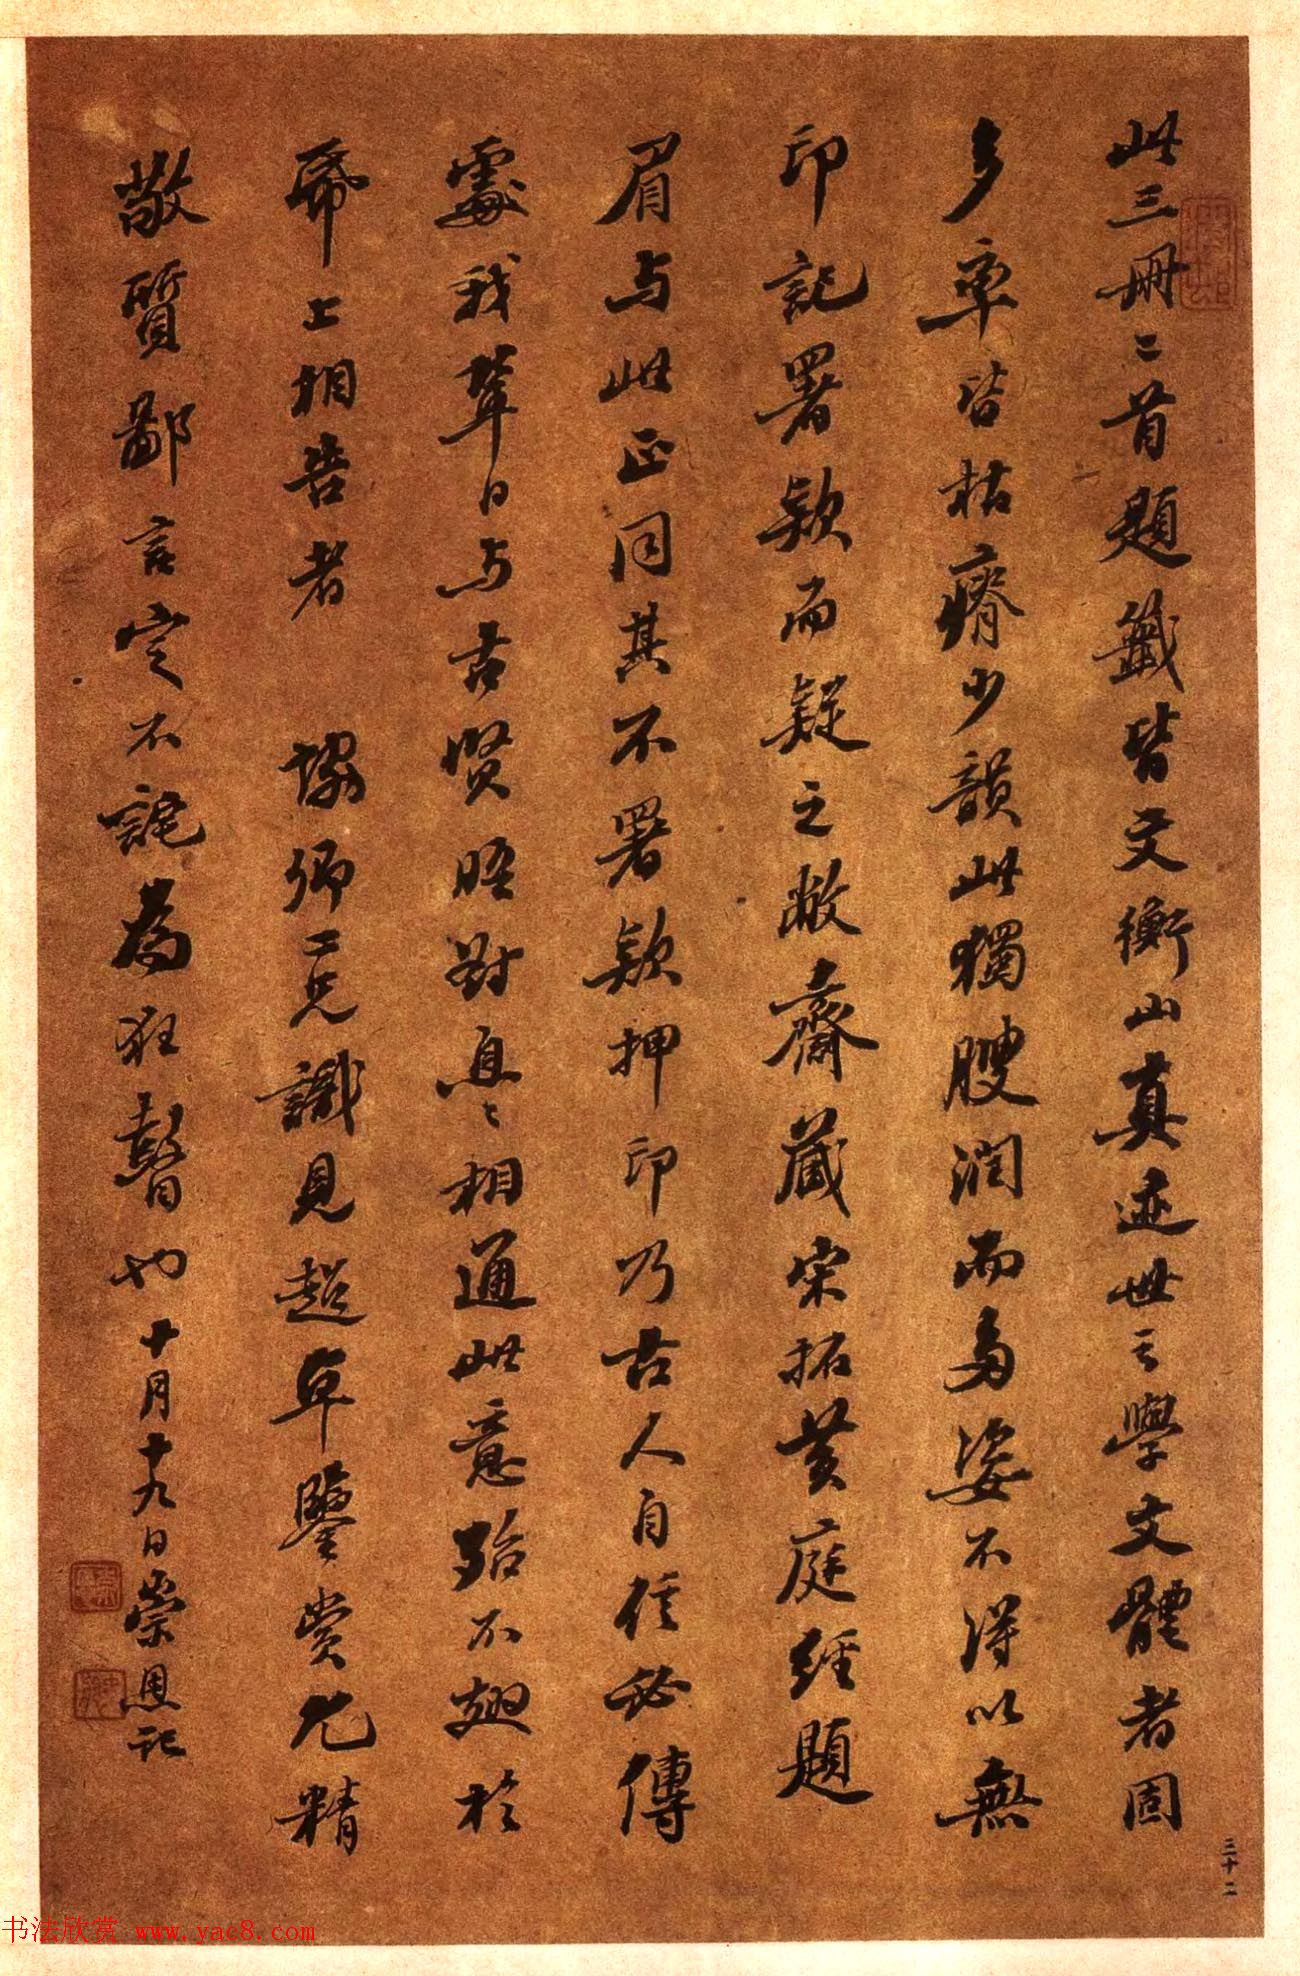 此三冊冊首題籤皆文衡山真迹世之學文體者固
多率皆枯瘠少韻此獨腴潤而多姿不得以無
印記署款而疑之敝齋藏宋拓黃庭經題
眉与此正同其不署款押印乃古人自任必傳
處我輩日与古賢晤對息息相通此意殆不翅於
帋上相告者 協卿二兄識見超卓鑒賞尤精
敬質鄙言定不詫為狂瞽也十月十九日崇恩記
三十二
书法欣赏 www.yac8.com